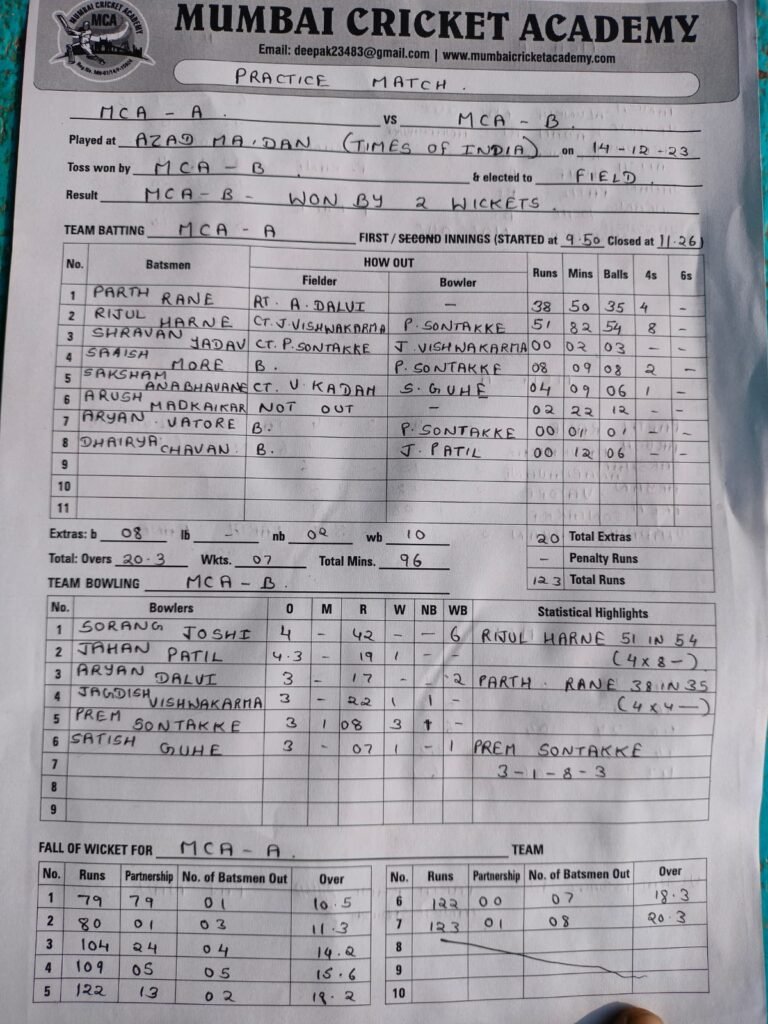 MUMBAI CRICKET ACADEMY
MCA
MUMBAI CRICKET ACADEMY
Email: deepak23483@gmail.com | www.mumbaicricketacademy.com
PRACTICE MATCH.
MCA - A. vs MCA - B
Played at AZAD MAIDAN (TIMES OF INDIA) on 14-12-23
Toss won by MCA - B & elected to FIELD
Result MCA-B- WON BY 2 WICKETS.
TEAM BATTING MCA - A FIRST / SECOND INNINGS (STARTED at 9.50 Closed at 11.26)
No. Batsmen HOW OUT Runs Mins Balls 4s 6s
Fielder Bowler
1 PARTH RANE RT. A. DALVI - 38 50 35 4 -
2 RIJUL HARNE CT. J. VISHWAKARMA P. SONTAKKE 51 82 54 8 -
3 SHRAVAN YADAV CT. P. SONTAKKE J. VISHWAKARMA 00 02 03 - -
4 SAAISH MORE B. P. SONTAKKE 08 09 08 2 -
5 SAKSHAM ANABHAVANE CT. V. KADAM S. GUHE 04 09 06 1 -
6 ARUSH MADKAIKAR NOT OUT - 02 22 12 - -
7 ARYAN VATORE B. P. SONTAKKE 00 01 01 - -
8 DHAIRYA CHAVAN. B. J. PATIL 00 12 06 - -
9
10
11
Extras: b 08 lb - nb wb 10 20 Total Extras
- Penalty Runs
Total: Overs 20.3 Wkts. 07 Total Mins. 96 123 Total Runs
TEAM BOWLING MCA - B.
No. Bowlers O M R W NB WB Statistical Highlights
1 SORANG JOSHI 4 - 42 - - 6 RIJUL HARNE 51 IN 54
2 JAHAN PATIL 4.3 - 19 1 - - (4x8-)
3 ARYAN DALVI 3 - 17 - - 2 PARTH. RANE 38 IN 35
4 JAGDISH VISHWAKARMA 3 - 22 1 1 - (4x4-)
5 PREM SONTAKKE 3 1 08 3 1 -
6 SATISH GUHE 3 - 07 1 - 1 PREM SONTAKKE
7 3-1-8-3
8
9
FALL OF WICKET FOR MCA - A. TEAM
No. Runs Partnership No. of Batsmen Out Over
1 79 79 01 10.5
2 80 01 03 11.3
3 104 24 04 14.2
4 109 05 05 15.6
5 122 13 02 18.2
No. Runs Partnership No. of Batsmen Out Over
6 122 00 07 18.3
7 123 01 08 20.3
8
9
10